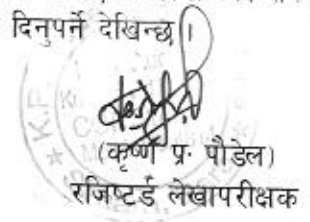 दिनुपर्ने देखिन्छ ।
(कृष्ण प्र. पौडेल)
रजिष्टर्ड लेखापरीक्षक